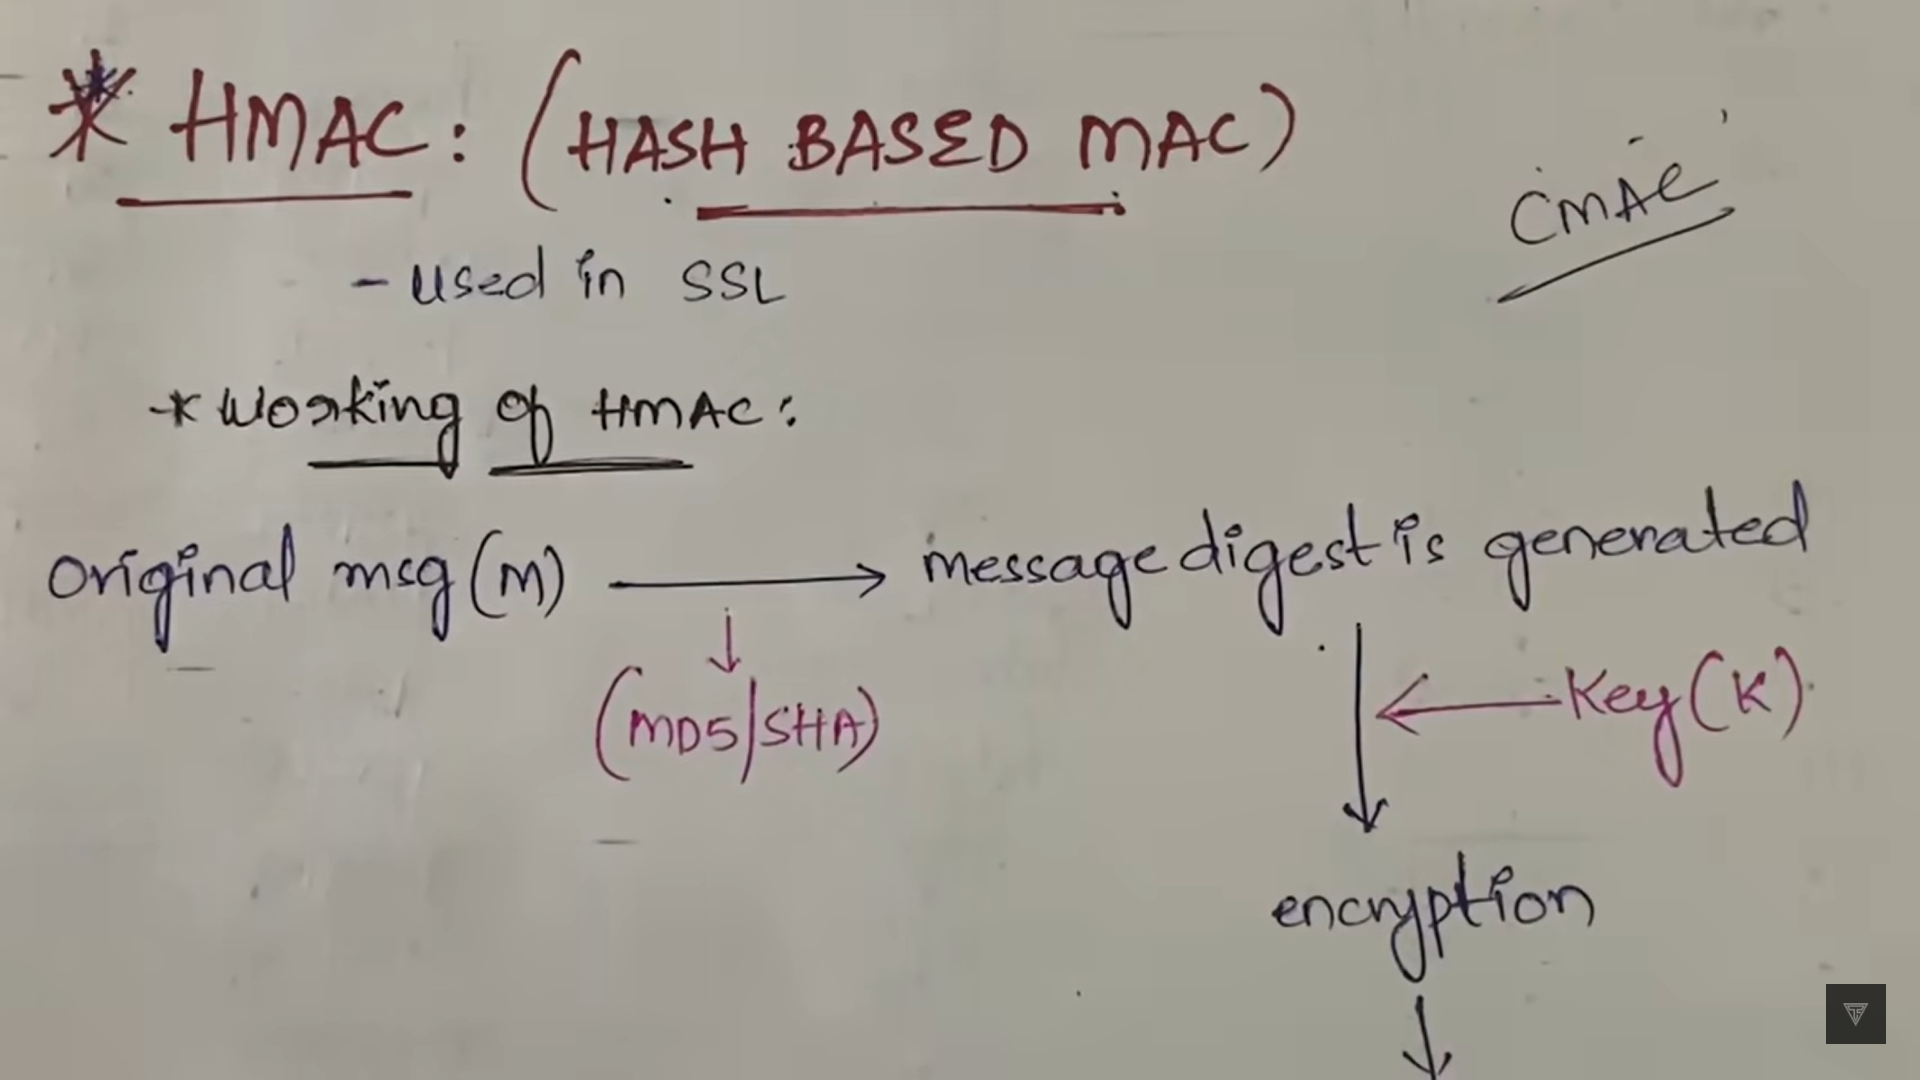 * HMAC: (HASH BASED MAC)
CMAC
- used in SSL
* Working of HMAC:
Original msg (M) → message digest is generated
↓ ← Key (K)
(MD5/SHA)
encryption
↓